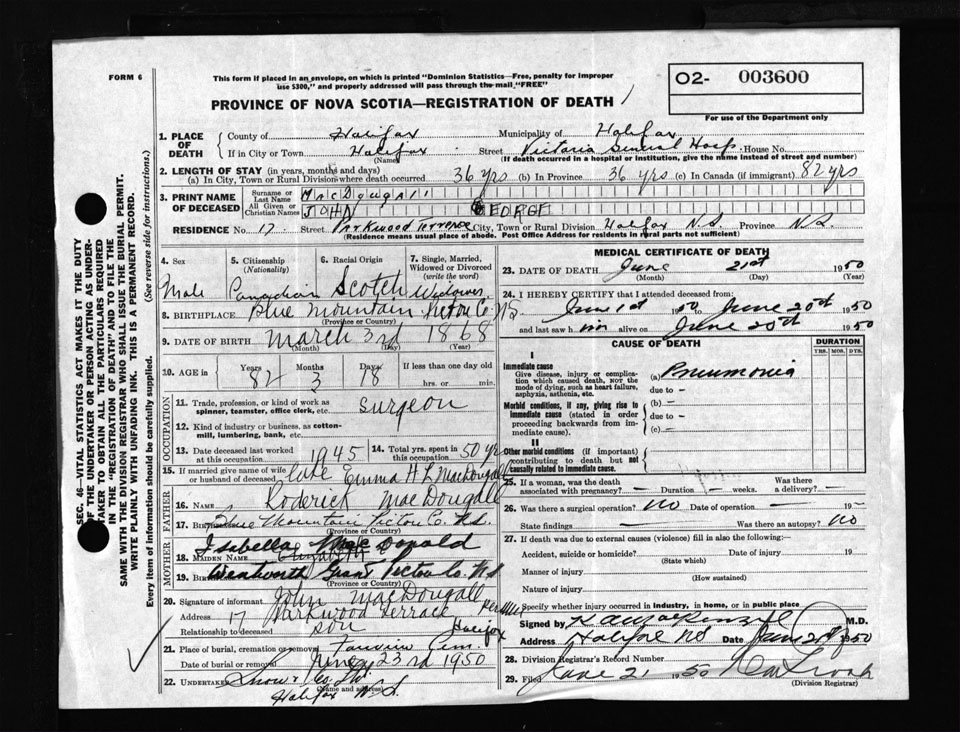 FORM 6
This form if placed in an envelope, on which is printed "Dominion Statistics—Free, penalty for improper
use $300," and properly addressed will pass through the mail, "FREE"
O2- 003600
For use of the Department only
PROVINCE OF NOVA SCOTIA—REGISTRATION OF DEATH
1. PLACE OF DEATH { County of Halifax Municipality of Halifax
If in City or Town Halifax Street Victoria General Hosp. House No.
(Name) (If death occurred in a hospital or institution, give the name instead of street and number)
2. LENGTH OF STAY (in years, months and days)
(a) In City, Town or Rural Division where death occurred 36 yrs (b) In Province 36 yrs (c) In Canada (if immigrant) 82 yrs
3. PRINT NAME OF DECEASED { Surname or Last Name MacDougall
All Given or Christian Names JOHN GEORGE
RESIDENCE No. 17 Street Parkwood Terrace City, Town or Rural Division Halifax N.S. Province N.S.
(Residence means usual place of abode. Post Office Address for residents in rural parts not sufficient)
4. Sex Male
5. Citizenship (Nationality) Canadian
6. Racial Origin Scotch
7. Single, Married, Widowed or Divorced (write the word) Widower
8. BIRTHPLACE Blue Mountain Pictou Co. NS
(Province or Country)
9. DATE OF BIRTH March 3rd 1868
(Month) (Day) (Year)
10. AGE in { Years 82 Months 3 Days 18 If less than one day old
hrs. or min.
OCCUPATION
11. Trade, profession, or kind of work as spinner, teamster, office clerk, etc. Surgeon
12. Kind of industry or business, as cotton-mill, lumbering, bank, etc.
13. Date deceased last worked at this occupation 1945
14. Total yrs. spent in this occupation 50 yrs
15. If married give name of wife or husband of deceased Emma H L MacDougall
FATHER
16. NAME Roderick MacDougall
17. BIRTHPLACE Blue Mountain Pictou Co. N.S.
(Province or Country)
MOTHER
18. MAIDEN NAME Isabella MacDonald
19. BIRTHPLACE Wentworth Grant Pictou Co. N.S
(Province or Country)
20. Signature of informant John MacDougall
Address 17 Parkwood Terrace Halifax
Relationship to deceased son
21. Place of burial, cremation or removal Fairview Cem.
Date of burial or removal June 23rd 1950
22. UNDERTAKER Snow & Co. Ltd.
(Name and address)
Halifax N.S.
MEDICAL CERTIFICATE OF DEATH
23. DATE OF DEATH June 21st 1950
(Month) (Day) (Year)
24. I HEREBY CERTIFY that I attended deceased from:
June 1st 1950 to June 20th 1950
and last saw him alive on June 20th 1950
CAUSE OF DEATH
DURATION
YRS. MOS. DYS.
I
Immediate cause
Give disease, injury or complication which caused death, NOT the mode of dying, such as heart failure, asphyxia, asthenia, etc.
(a) Pneumonia
due to –
Morbid conditions, if any, giving rise to immediate cause (stated in order proceeding backwards from immediate cause).
(b) –
due to –
(c) –
II
Other morbid conditions (if important) contributing to death but not causally related to immediate cause.
25. If a woman, was the death associated with pregnancy? – Duration – weeks. Was there a delivery? –
26. Was there a surgical operation? No Date of operation – 19 –
State findings – Was there an autopsy? No
27. If death was due to external causes (violence) fill in also the following:
Accident, suicide or homicide? Date of injury 19
(State which)
Manner of injury
(How sustained)
Nature of injury
Specify whether injury occurred in industry, in home, or in public place
Signed by M.D.
Address Halifax NS Date June 21st 1950
28. Division Registrar's Record Number
29. Filed June 21 1950
(Division Registrar)
SEC. 46—VITAL STATISTICS ACT MAKES IT THE DUTY
OF THE UNDERTAKER OR PERSON ACTING AS UNDERTAKER TO OBTAIN ALL THE PARTICULARS REQUIRED
IN THE "REGISTRATION OF DEATH" AND TO FILE THE
SAME WITH THE DIVISION REGISTRAR WHO SHALL ISSUE THE BURIAL PERMIT.
WRITE PLAINLY WITH UNFADING INK. THIS IS A PERMANENT RECORD.
Every item of information should be carefully supplied. (See reverse side for instructions.)